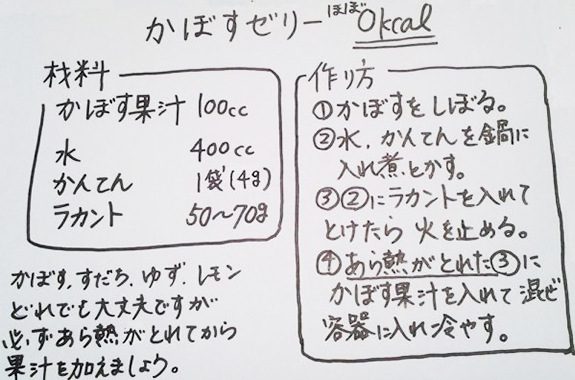 かぼすゼリーほぼ0kcal
材料
かぼす果汁 100cc
水 400cc
かんてん 1袋(4g)
ラカント 50〜70g
かぼす、すだち、ゆず、レモン
どれでも大丈夫ですが
必ずあら熱がとれてから
果汁を加えましょう。
作り方
①かぼすをしぼる。
②水、かんてんを鍋に
入れ煮とかす。
③②にラカントを入れて
とけたら 火を止める。
④あら熱がとれた③に
かぼす果汁を入れて混ぜ
容器に入れ冷やす。